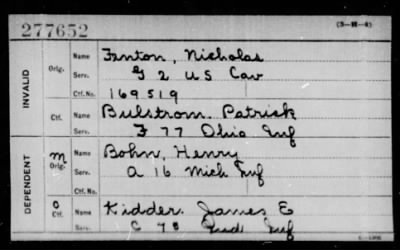 277652 (3-W-4)
INVALID
Orig. Name Fenton, Nicholas
Serv. G 2 US Cav
Ctf. No. 169519
Ctf. Name Bulstrom. Patrick
Serv. F 77 Ohio Inf
DEPENDENT
m Orig. Name Bohn, Henry
Serv. A 16 Mich Inf
Ctf. No.
o Ctf. Name Kidder. James E
Serv. C 78 Ind Inf